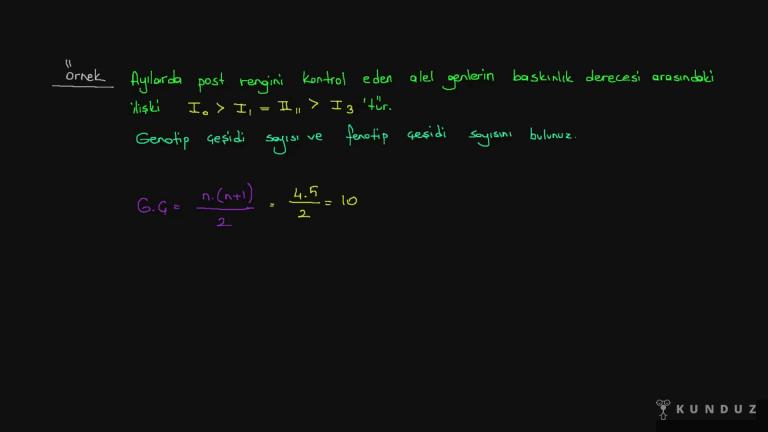 Örnek
Ayılarda post rengini kontrol eden alel genlerin baskınlık derecesi arasındaki
ilişki I₀ > I₁ = II₁₁ > I₃ 'tür.
Genotip çeşidi sayısı ve fenotip çeşidi sayısını bulunuz.
G.Ç = n.(n+1)/2 = 4.5/2 = 10
KUNDUZ